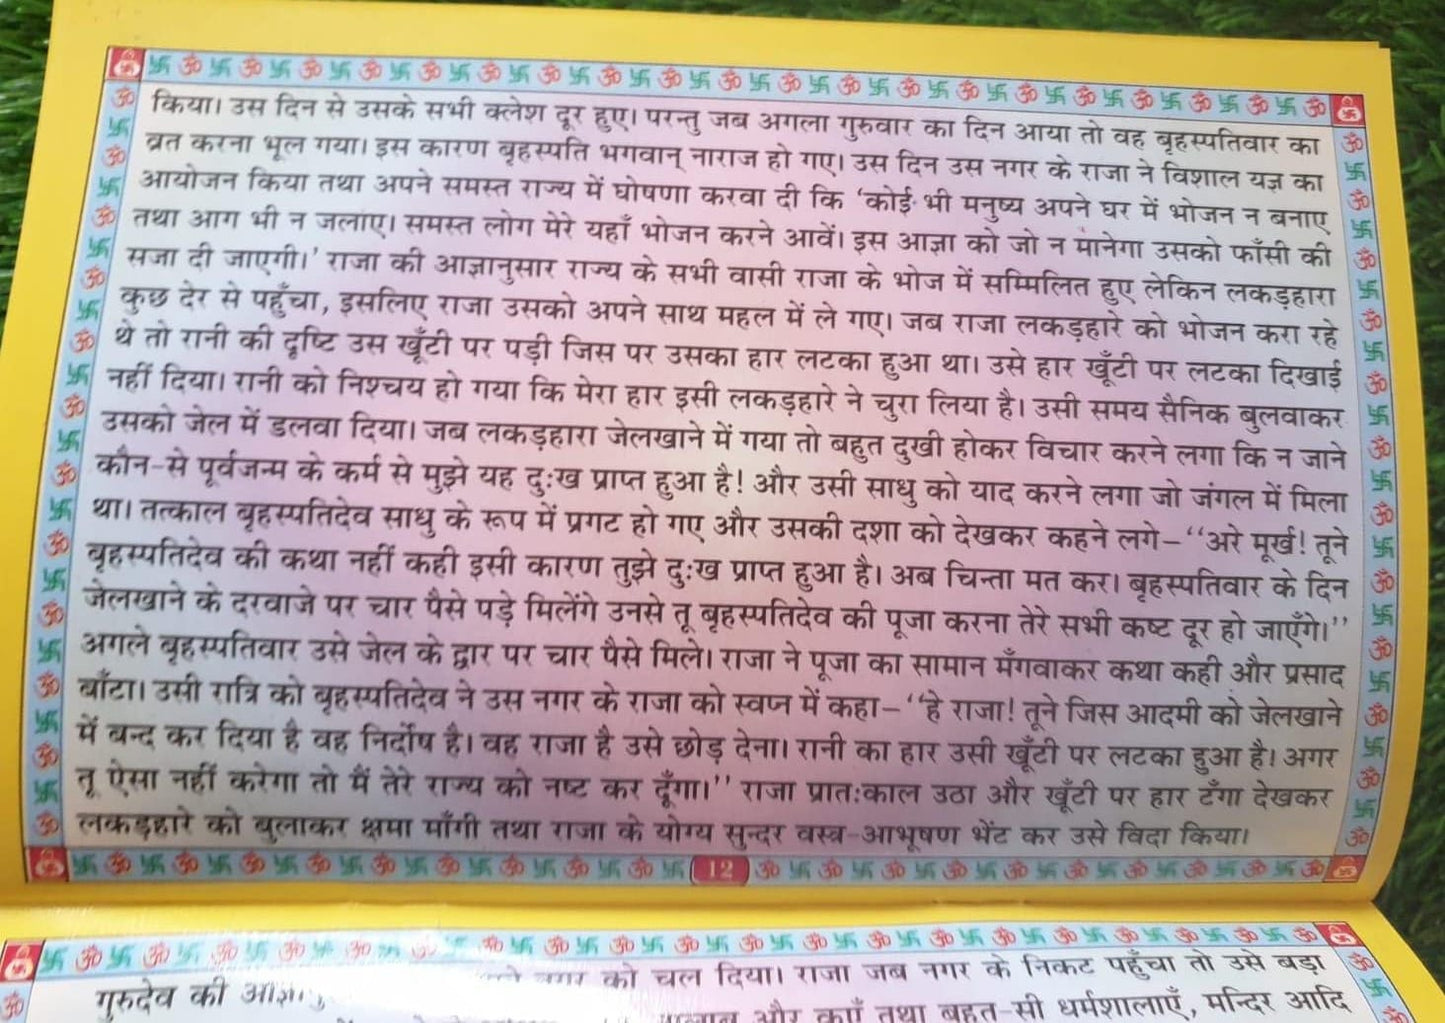 किया। उस दिन से उसके सभी क्लेश दूर हुए। परन्तु जब अगला गुरुवार का दिन आया तो वह बृहस्पतिवार का
व्रत करना भूल गया। इस कारण बृहस्पति भगवान् नाराज हो गए। उस दिन उस नगर के राजा ने विशाल यज्ञ का
आयोजन किया तथा अपने समस्त राज्य में घोषणा करवा दी कि ‘कोई भी मनुष्य अपने घर में भोजन न बनाए
तथा आग भी न जलाए। समस्त लोग मेरे यहाँ भोजन करने आवें। इस आज्ञा को जो न मानेगा उसको फाँसी की
सजा दी जाएगी।’ राजा की आज्ञानुसार राज्य के सभी वासी राजा के भोज में सम्मिलित हुए लेकिन लकड़हारा
कुछ देर से पहुँचा, इसलिए राजा उसको अपने साथ महल में ले गए। जब राजा लकड़हारे को भोजन करा रहे
थे तो रानी की दृष्टि उस खूँटी पर पड़ी जिस पर उसका हार लटका हुआ था। उसे हार खूँटी पर लटका दिखाई
नहीं दिया। रानी को निश्चय हो गया कि मेरा हार इसी लकड़हारे ने चुरा लिया है। उसी समय सैनिक बुलवाकर
उसको जेल में डलवा दिया। जब लकड़हारा जेलखाने में गया तो बहुत दुखी होकर विचार करने लगा कि न जाने
कौन-से पूर्वजन्म के कर्म से मुझे यह दुःख प्राप्त हुआ है! और उसी साधु को याद करने लगा जो जंगल में मिला
था। तत्काल बृहस्पतिदेव साधु के रूप में प्रगट हो गए और उसकी दशा को देखकर कहने लगे–‘‘अरे मूर्ख! तूने
बृहस्पतिदेव की कथा नहीं कही इसी कारण तुझे दुःख प्राप्त हुआ है। अब चिन्ता मत कर। बृहस्पतिवार के दिन
जेलखाने के दरवाजे पर चार पैसे पड़े मिलेंगे उनसे तू बृहस्पतिदेव की पूजा करना तेरे सभी कष्ट दूर हो जाएँगे।’’
अगले बृहस्पतिवार उसे जेल के द्वार पर चार पैसे मिले। राजा ने पूजा का सामान मँगवाकर कथा कही और प्रसाद
बाँटा। उसी रात्रि को बृहस्पतिदेव ने उस नगर के राजा को स्वप्न में कहा–‘‘हे राजा! तूने जिस आदमी को जेलखाने
में बन्द कर दिया है वह निर्दोष है। वह राजा है उसे छोड़ देना। रानी का हार उसी खूँटी पर लटका हुआ है। अगर
तू ऐसा नहीं करेगा तो मैं तेरे राज्य को नष्ट कर दूँगा।’’ राजा प्रातःकाल उठा और खूँटी पर हार टँगा देखकर
लकड़हारे को बुलाकर क्षमा माँगी तथा राजा के योग्य सुन्दर वस्त्र-आभूषण भेंट कर उसे विदा किया।
12
गुरुदेव की को चल दिया। राजा जब नगर के निकट पहुँचा तो उसे बड़ा
और कुएँ तथा बहुत-सी धर्मशालाएँ, मन्दिर आदि